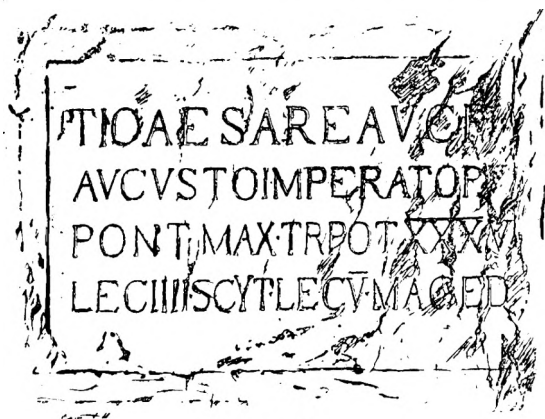 TICAESAREAVCF
AVCVSTOIMPERATOR
PONT·MAX·TRPOT XXXV
LECIIIISCYTLECV·MACED